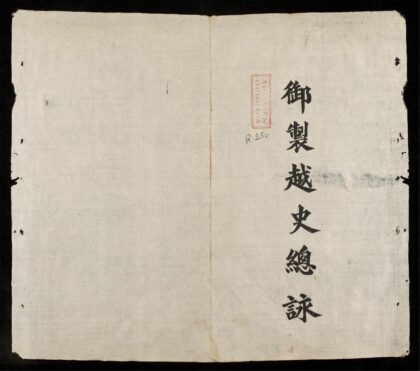 御製越史總詠
R.250